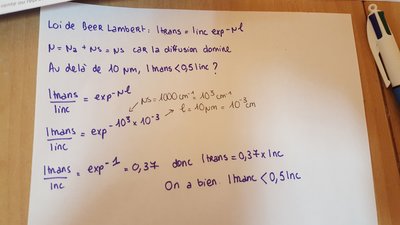 Loi de Beer Lambert : Itrans = Iinc exp-Nl
N = Na + Ns = Ns car la diffusion domine
Au delà de 10 µm, Itrans < 0,5 Iinc ?
Itrans/Iinc = exp-Nl
Ns = 1000 cm-1 10³ cm-1
l = 10µm = 10-³ cm
Itrans/Iinc = exp -10³ x 10-³
Itrans/Iinc = exp-1 = 0,37 donc Itrans = 0,37 x Inc
On a bien Itranc < 0,5 Iinc